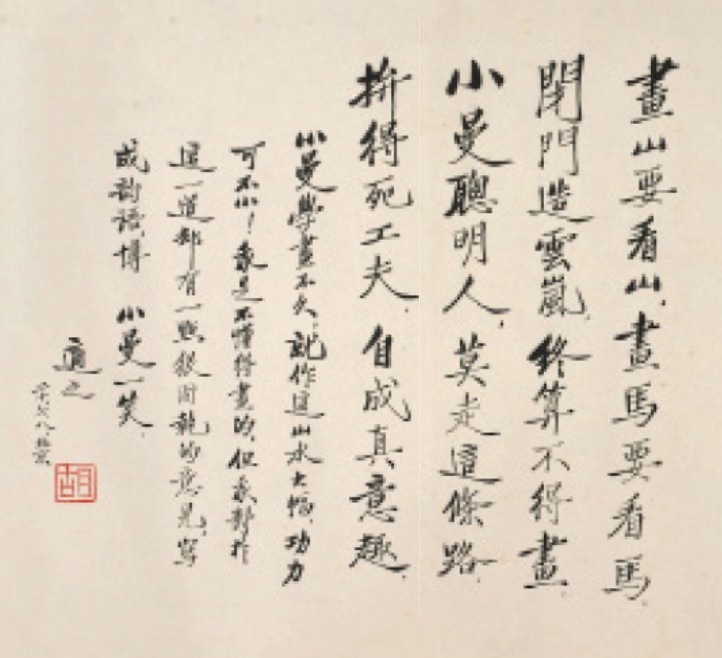 畫山要看山,畫馬要看馬.
閉門造雲嵐,終算不得畫.
小曼聰明人,莫走這條路.
拚得死工夫,自成真意趣.
小曼學畫不久,就作這山水大幅,功力
可不小!我是不懂得畫的,但我對於
這一道卻有一點很固執的意見,寫
成韵語,博 小曼一笑.
適之
二十,七,八,北京
胡